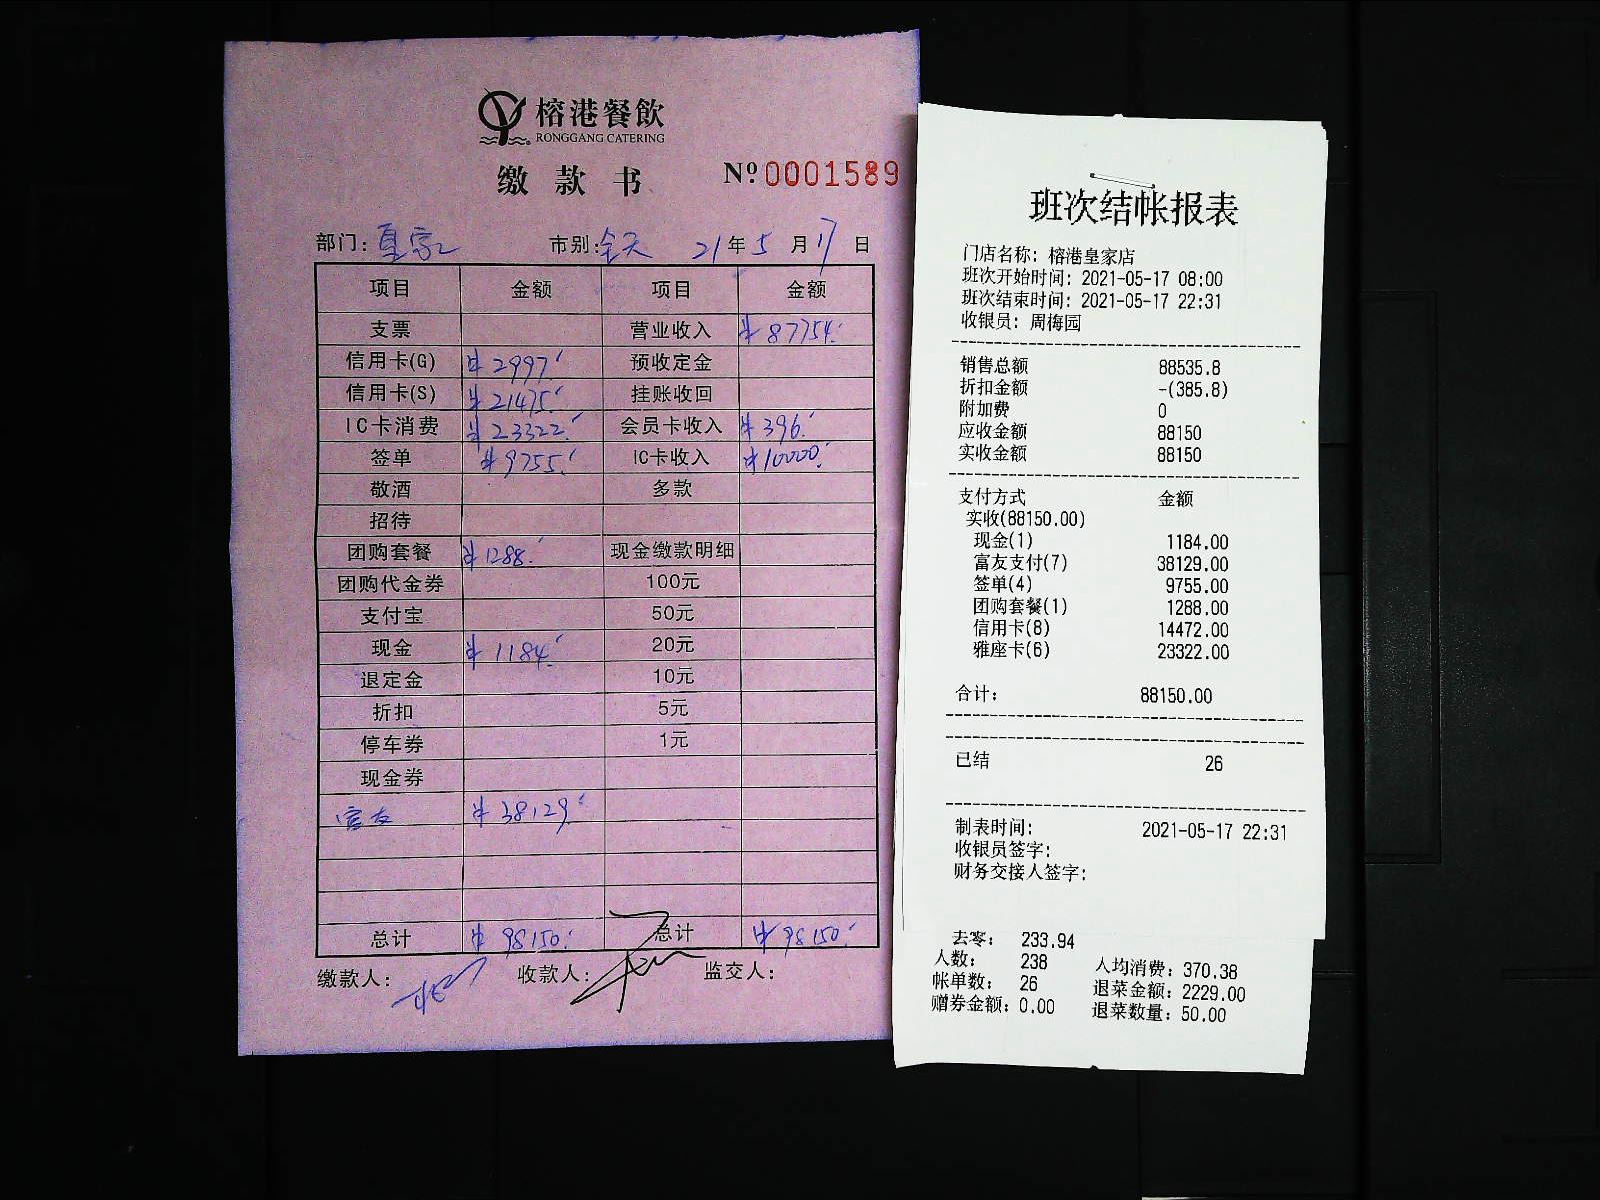 榕港餐飲
RONGGANG CATERING
缴款书 Nº0001589
部门: 皇家 市别: 全天 21年5月17日
项目 金额 项目 金额
支票 营业收入 ¥87754.
信用卡(G) ¥2997. 预收定金
信用卡(S) ¥21475. 挂账收回
IC卡消费 ¥23322. 会员卡收入 ¥396.
签单 ¥9755. IC卡收入 ¥10000.
敬酒 多款
招待
团购套餐 ¥1288. 现金缴款明细
团购代金券 100元
支付宝 50元
现金 ¥1184. 20元
退定金 10元
折扣 5元
停车券 1元
现金券
富友 ¥38129.
总计 ¥98150. 总计 ¥98150.
缴款人: 收款人: 监交人:
班次结帐报表
门店名称: 榕港皇家店
班次开始时间: 2021-05-17 08:00
班次结束时间: 2021-05-17 22:31
收银员: 周梅园
销售总额 88535.8
折扣金额 -(385.8)
附加费 0
应收金额 88150
实收金额 88150
支付方式 金额
实收(88150.00)
现金(1) 1184.00
富友支付(7) 38129.00
签单(4) 9755.00
团购套餐(1) 1288.00
信用卡(8) 14472.00
雅座卡(6) 23322.00
合计: 88150.00
已结 26
制表时间: 2021-05-17 22:31
收银员签字:
财务交接人签字:
去零: 233.94
人数: 238 人均消费: 370.38
帐单数: 26 退菜金额: 2229.00
赠券金额: 0.00 退菜数量: 50.00